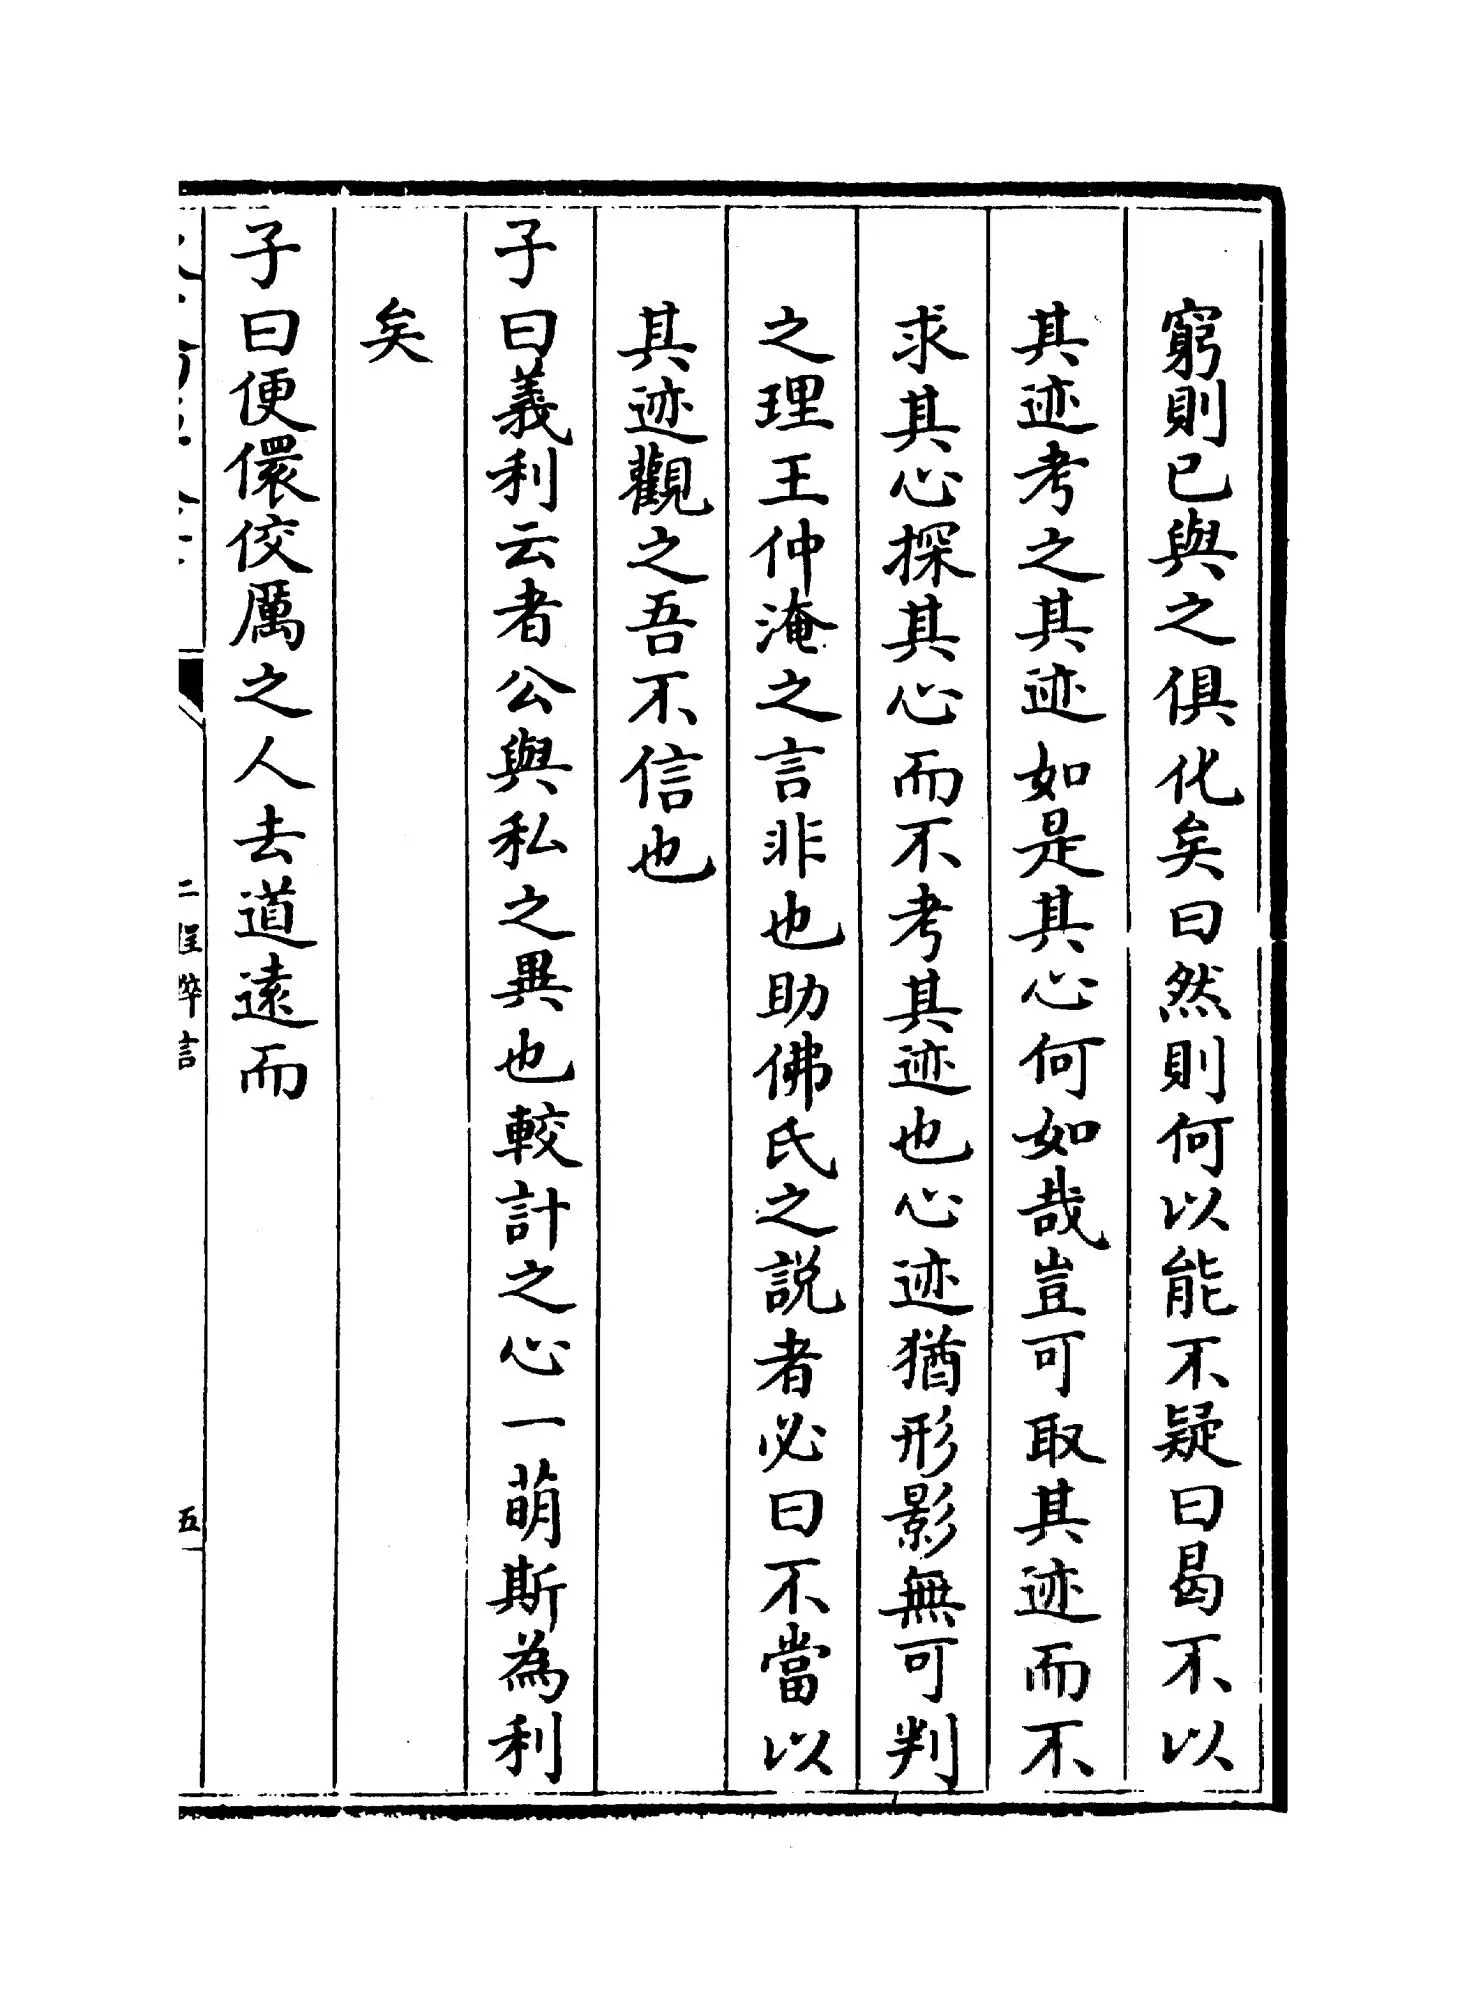 窮則已與之俱化矣曰然則何以能不疑曰曷不以
其迹考之其迹如是其心何如哉豈可取其迹而不
求其心探其心而不考其迹也心迹猶形影無可判
之理王仲淹之言非也助佛氏之說者必曰不當以
其迹觀之吾不信也
子曰義利云者公與私之異也較計之心一萌斯為利
矣
子曰便儇佼厲之人去道遠而
二程粹言
五